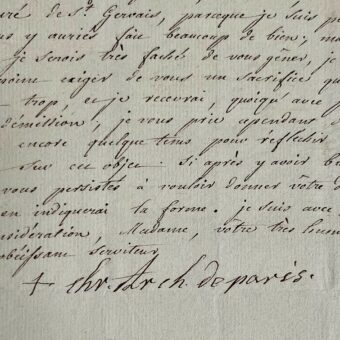 uré de St. Gervais, parceque je suis p
us y auriés fait beaucoup de bien; ma
je serois très faché de vous gêner, je
moins exiger de vous un sacrifice qu
trop, et je recevrai, quoiqu'avec p
démission, je vous prie cependant d
encore quelque tems pour réflechir
sur cet objet. Si après y avoir b
vous persistés à vouloir donner vôtre d
en indiquerai la forme. je suis avec
sidération, Madame, votre très hum
obéissant serviteur
+ chr. Arch. de paris.